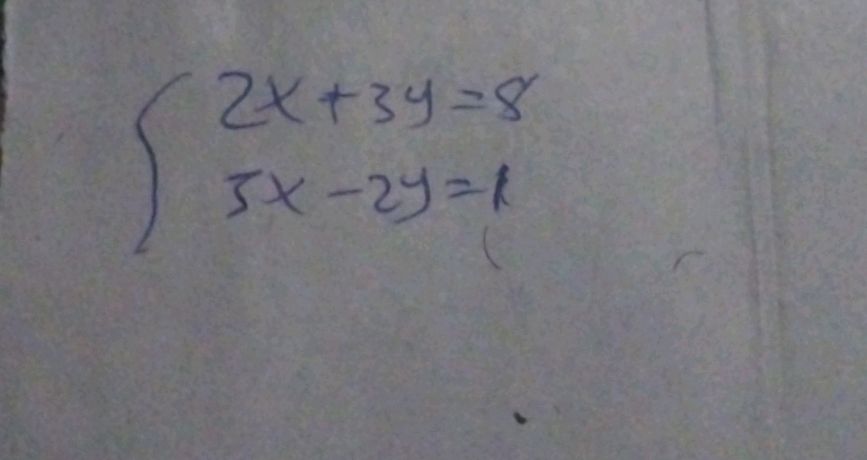 2x+3y=8
5x-2y=1